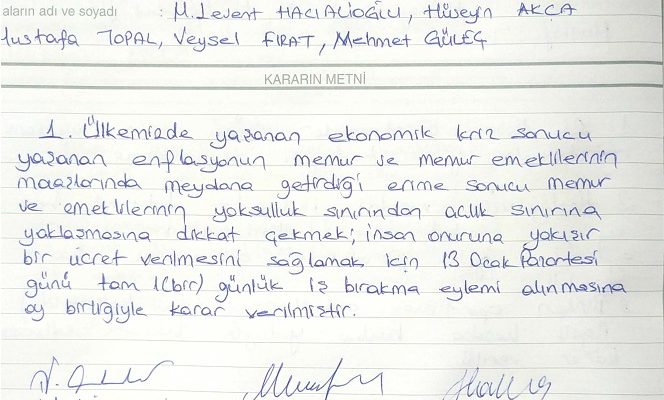 aların adı ve soyadı : M. Levent HACIALİOĞLU, Hüseyin AKÇA
Mustafa TOPAL, Veysel FIRAT, Mehmet GÜLEÇ
KARARIN METNİ
1. Ülkemizde yaşanan ekonomik kriz sonucu
yaşanan enflasyonun memur ve memur emeklilerinin
maaşlarında meydana getirdiği erime sonucu memur
ve emeklilerinin yoksulluk sınırından açlık sınırına
yaklaşmasına dikkat çekmek; insan onuruna yakışır
bir ücret verilmesini sağlamak için 13 Ocak Pazartesi
günü tam 1(bir) günlük iş bırakma eylemi alınmasına
oy birliğiyle karar verilmiştir.